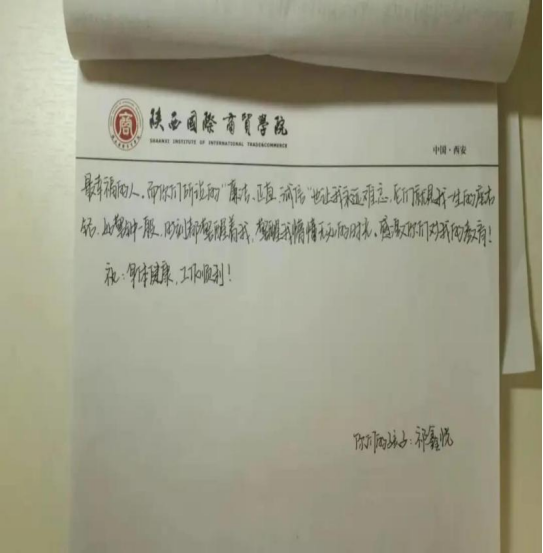 陕西国际商贸学院
SHAANXI INSTITUTE OF INTERNATIONAL TRADE&COMMERCE
中国·西安
最幸福的人。而你们所说的“廉洁、正直、诚信”也让我永远难忘。它们就是我一生的座右
铭，如警钟一般，时刻都警醒着我，警醒我懵懂无知的时光。感谢你们对我的教育！
祝：身体健康，工作顺利！
你们的孩子：祁鑫悦